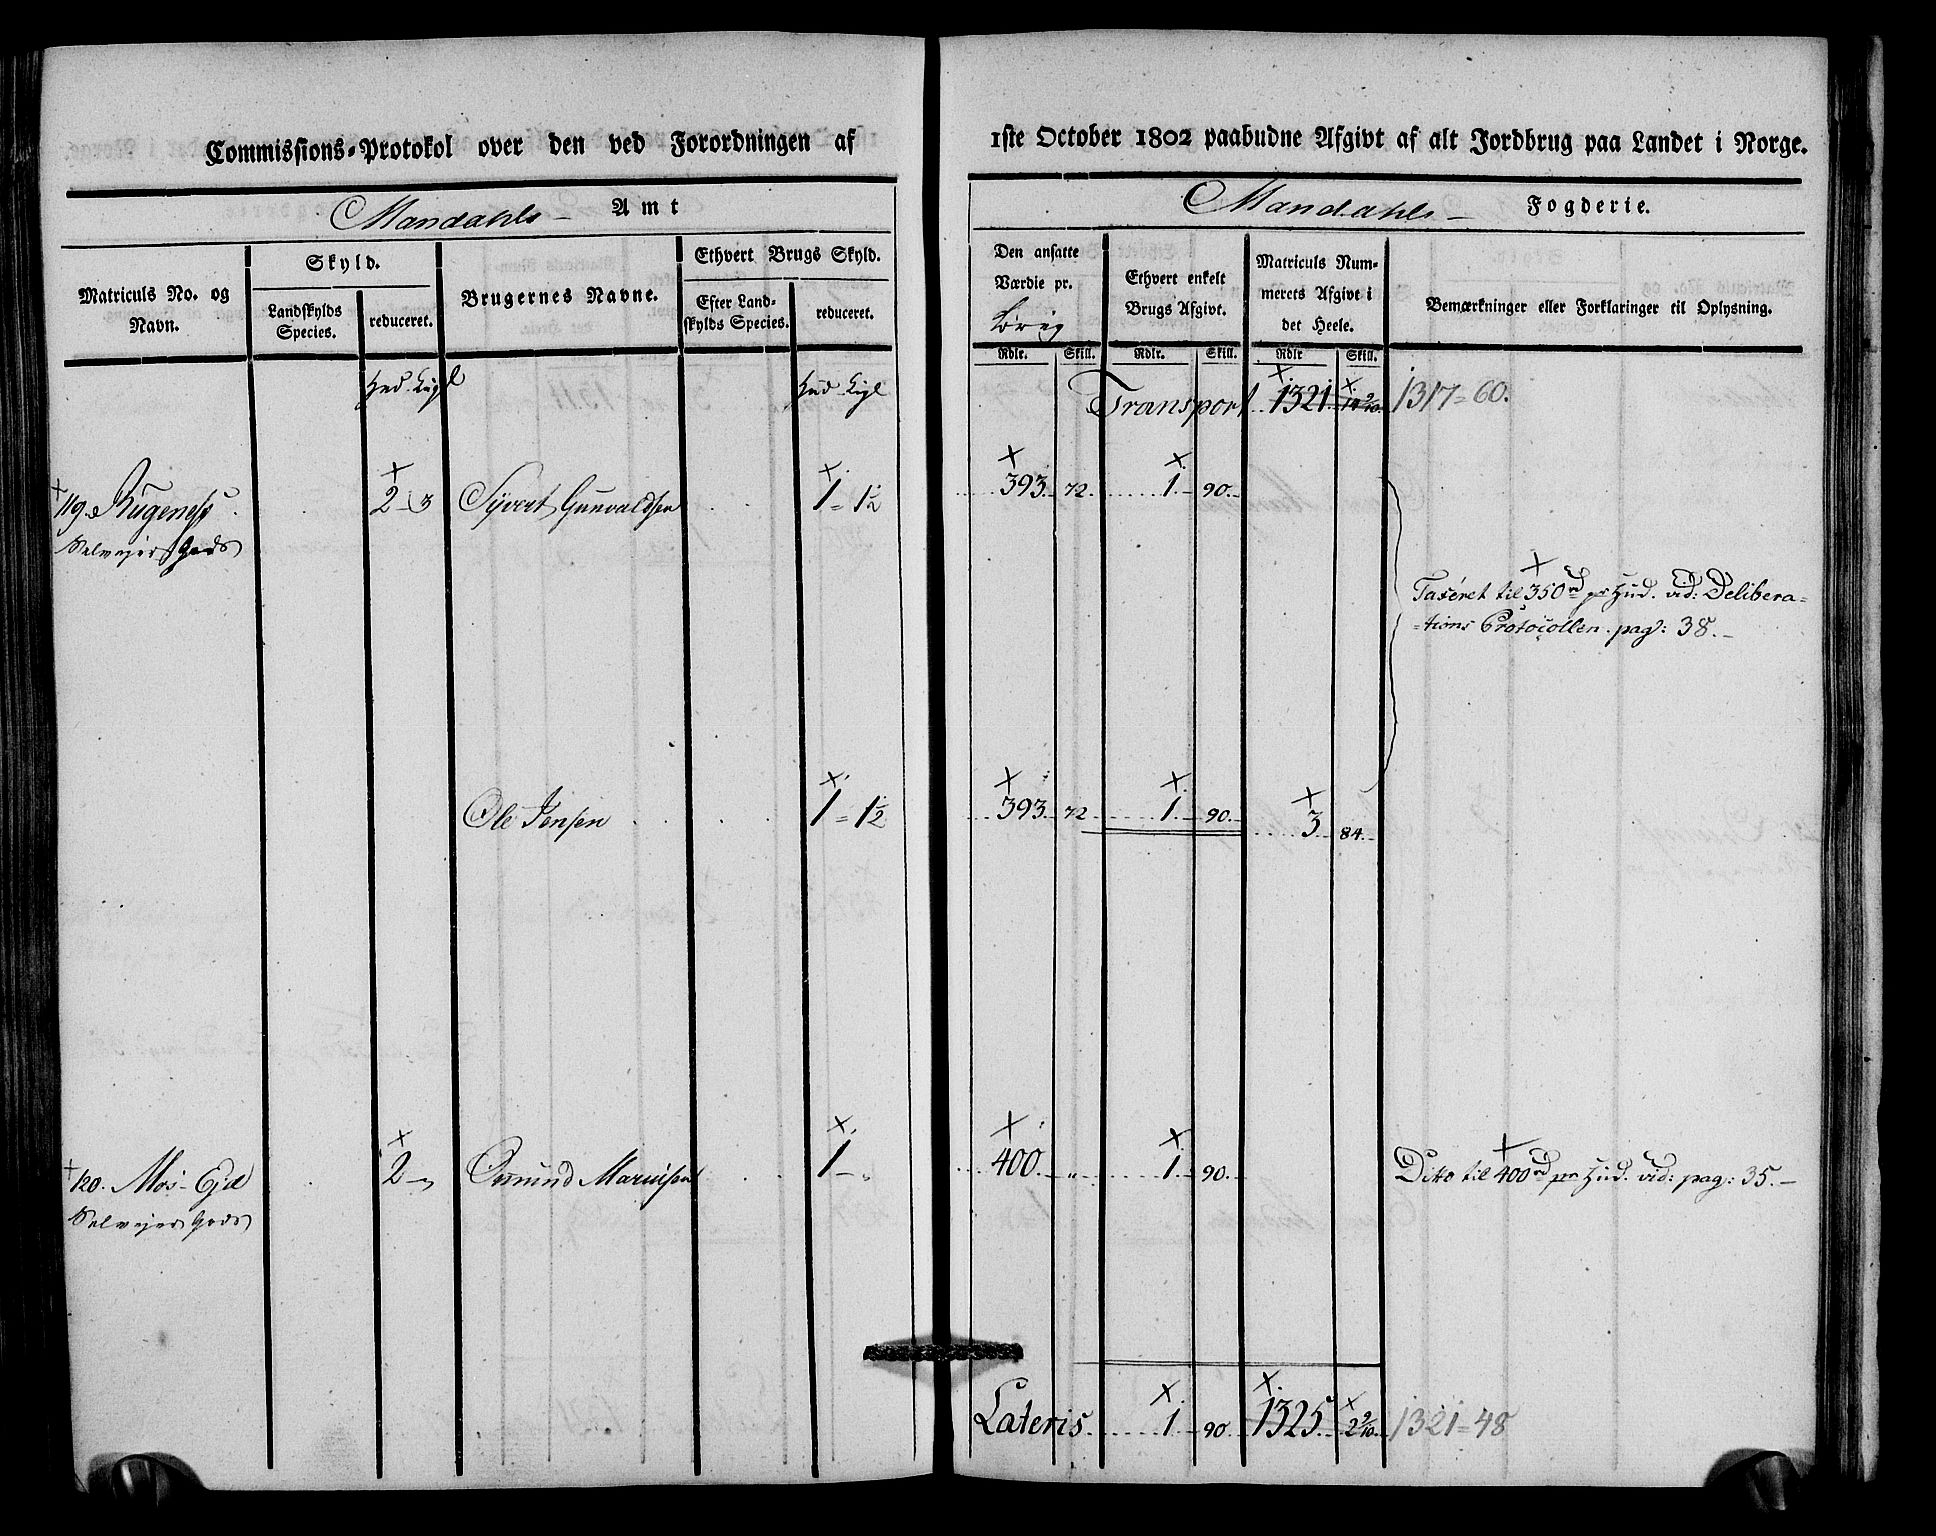 Commissions-Protokol over den ved Forordningen af 1ste October 1802 paabudne Afgivt af alt Jordbrug paa Landet i Norge.
Mandahls Amt
Mandahls Fogderie.
Matriculs No. og Navn.
Skyld.
Landskylds Species.
reduceret.
Brugernes Navne.
Ethvert Brugs Skyld.
Efter Landskylds Species.
reduceret.
Den ansatte Værdie pr.
Ethvert enkelt Brugs Afgivt.
Matriculs Nummerets Afgivt i det Heele.
Bemærkninger eller Forklaringer til Oplysning.
Rdlr. Skill. Rdlr. Skill. Rdlr Skill.
Hud
Hud
Transport 1321. 14 9/10. 1317=60.
119. 2-3 Sivert Gunvaldsen 1=1½ 393. 72. 1. 90.
Selvejer Gods
Taxeret til 350rd pr Hud. vid: Delibera=
=tions Protocollen. pag: 38.-
Ole Jensen 1=1½ 393. 72. 1. 90. 3. 84.
120. Mos-Ejd 2-" Omund 1-" 400. " 1. 90. Ditto til 400rd pr Hud. vid: pag: 35.-
Selvejer Gods
Lateris 1. 90. 1325. 2 9/10. 1321=48